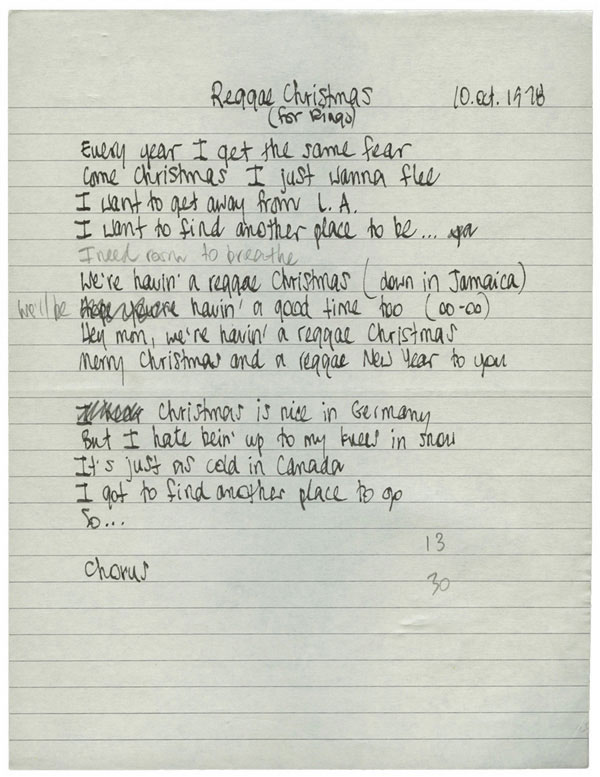 Reggae Christmas 10. oct. 1978
(for Ringo)
Every year I get the same fear
Come Christmas I just wanna flee
I want to get away from L.A.
I want to find another place to be...
I need room to breathe
We're havin' a reggae Christmas (down in Jamaica)
We'll be havin' a good time too (oo-oo)
Hey mon, we're havin' a reggae Christmas
Merry Christmas and a reggae New Year to you
Christmas is nice in Germany
But I hate bein' up to my knees in snow
It's just as cold in Canada
I got to find another place to go
So...
13
Chorus
30